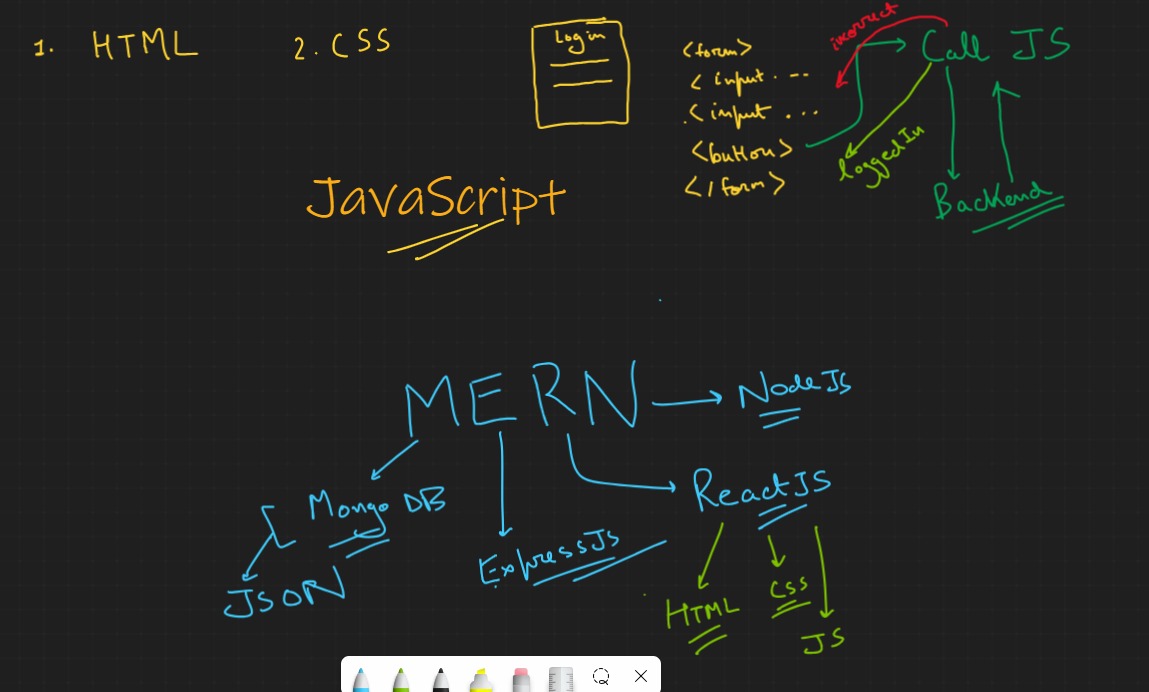 1. HTML
2. CSS
Login
<form>
< input. --
< input ...
<button>
</form>
incorrect
Call JS
loggedIn
Backend
JavaScript
MERN
NodeJs
Mongo DB
ReactJS
ExpressJs
JSON
HTML
CSS
JS